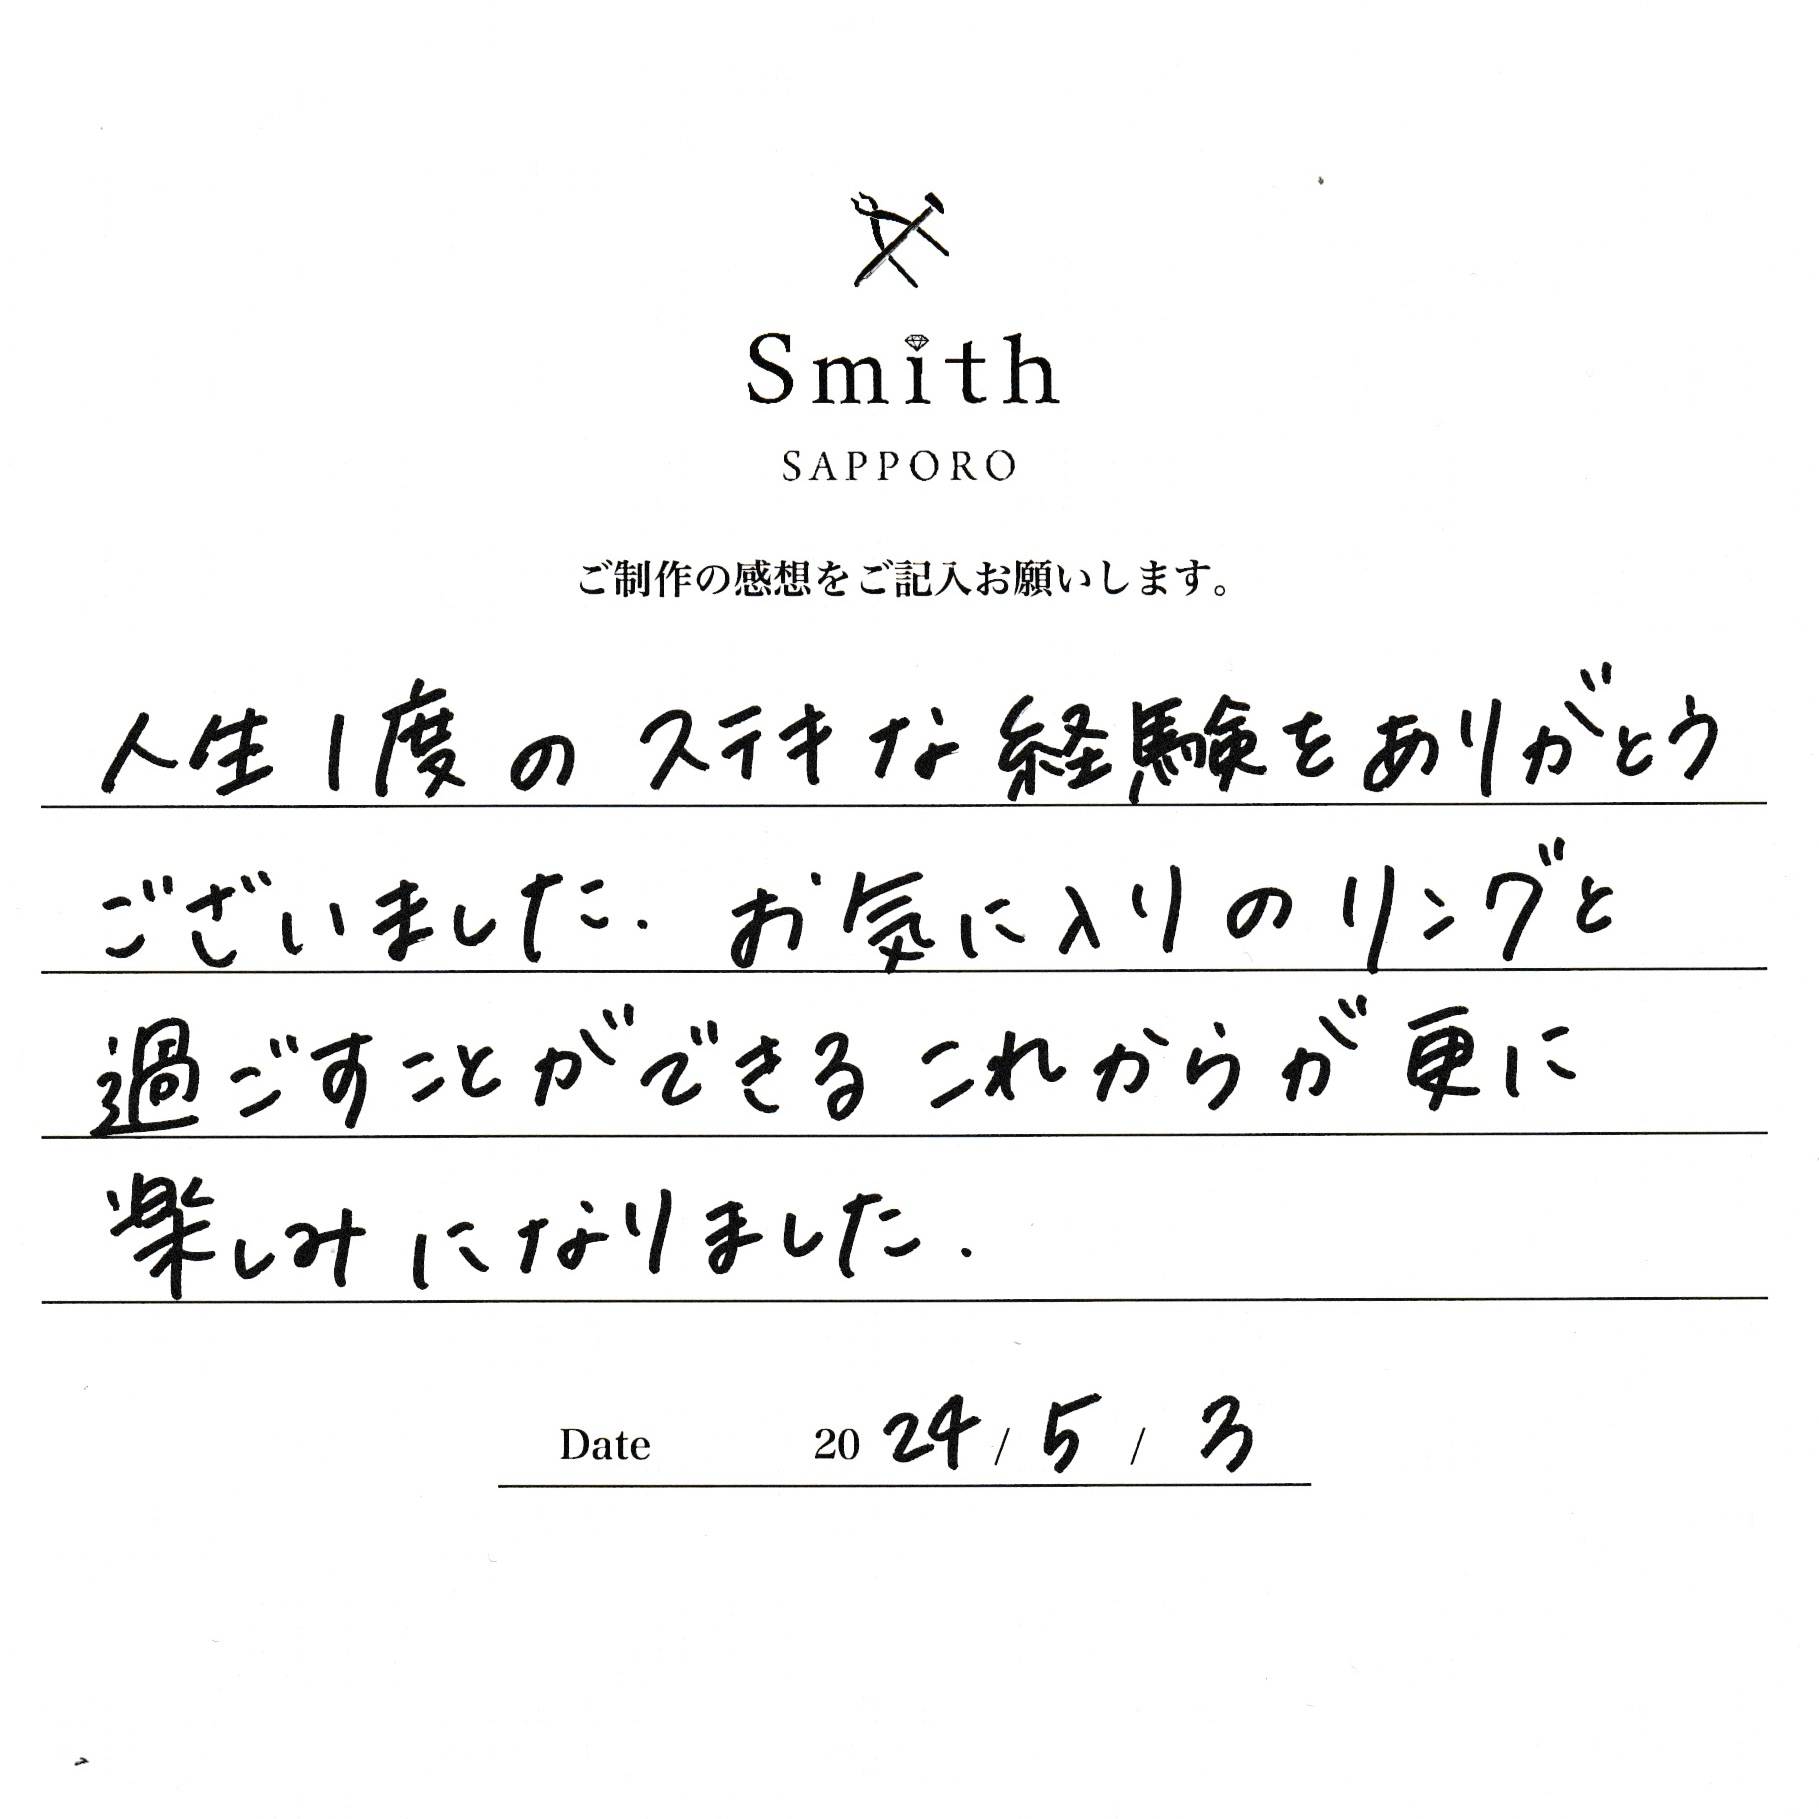 Smith
SAPPORO
ご制作の感想をご記入お願いします。
人生1度のステキな経験をありがとう
ございました. お気に入りのリングと
過ごすことができるこれからが更に
楽しみになりました.
Date 2024/5/3